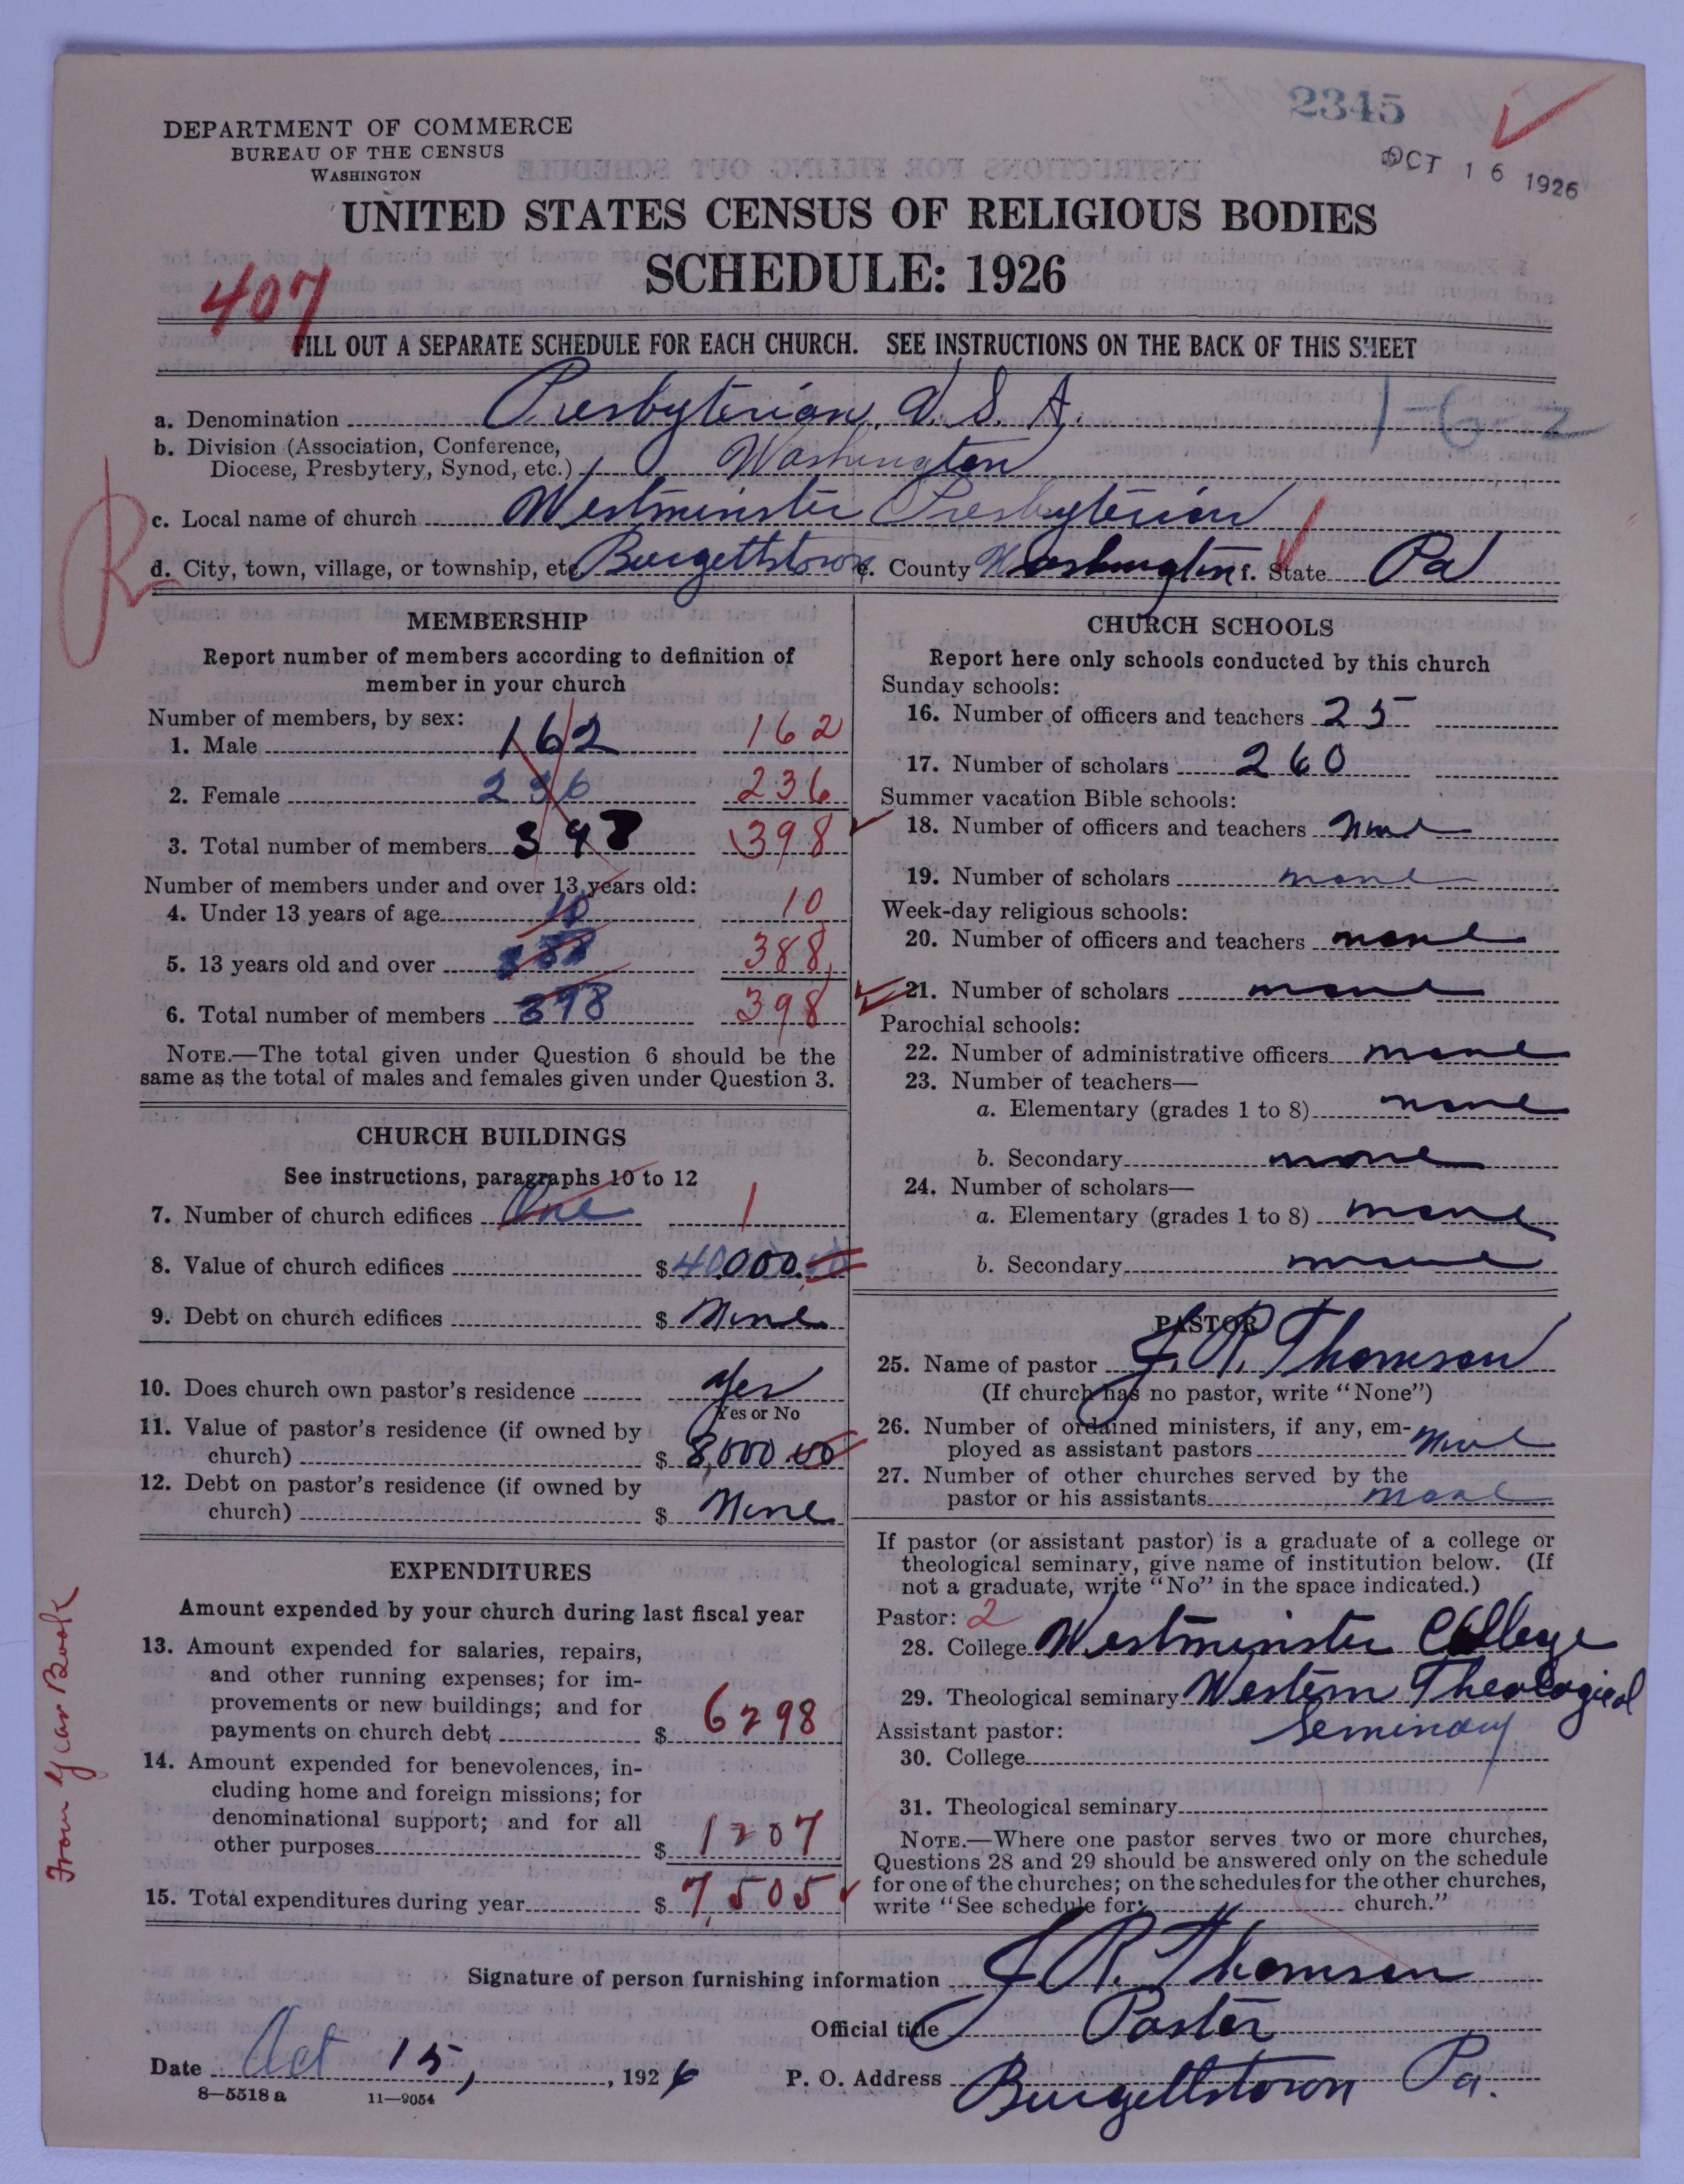 2345
OCT 16 1926
DEPARTMENT OF COMMERCE
BUREAU OF THE CENSUS
WASHINGTON
UNITED STATES CENSUS OF RELIGIOUS BODIES
SCHEDULE: 1926
407
FILL OUT A SEPARATE SCHEDULE FOR EACH CHURCH. SEE INSTRUCTIONS ON THE BACK OF THIS SHEET
a. Denomination Presbyterian, U. S. A. 1-6-2
b. Division (Association, Conference,
Diocese, Presbytery, Synod, etc.) Washington
c. Local name of church Westminster Presbyterian
d. City, town, village, or township, etc. Burgettstown e. County Washington f. State Pa
R
MEMBERSHIP
Report number of members according to definition of
member in your church
Number of members, by sex:
1. Male 162 162
2. Female 236 236
3. Total number of members 398 398
Number of members under and over 13 years old:
4. Under 13 years of age 10 10
5. 13 years old and over 388 388
6. Total number of members 398 398
NOTE.—The total given under Question 6 should be the
same as the total of males and females given under Question 3.
CHURCH BUILDINGS
See instructions, paragraphs 10 to 12
7. Number of church edifices One 1
8. Value of church edifices $ 40,000.00
9. Debt on church edifices $ None
10. Does church own pastor's residence Yes
Yes or No
11. Value of pastor's residence (if owned by
church) $ 8,000.00
12. Debt on pastor's residence (if owned by
church) $ None
EXPENDITURES
Amount expended by your church during last fiscal year
13. Amount expended for salaries, repairs,
and other running expenses; for im-
provements or new buildings; and for
payments on church debt $ 6298
14. Amount expended for benevolences, in-
cluding home and foreign missions; for
denominational support; and for all
other purposes $ 1207
15. Total expenditures during year $ 7,505
From Year Book
CHURCH SCHOOLS
Report here only schools conducted by this church
Sunday schools:
16. Number of officers and teachers 25
17. Number of scholars 260
Summer vacation Bible schools:
18. Number of officers and teachers none
19. Number of scholars none
Week-day religious schools:
20. Number of officers and teachers none
21. Number of scholars none
Parochial schools:
22. Number of administrative officers none
23. Number of teachers—
a. Elementary (grades 1 to 8) none
b. Secondary none
24. Number of scholars—
a. Elementary (grades 1 to 8) none
b. Secondary none
PASTOR
25. Name of pastor J. R. Thomson
(If church has no pastor, write "None")
26. Number of ordained ministers, if any, em-
ployed as assistant pastors none
27. Number of other churches served by the
pastor or his assistants none
If pastor (or assistant pastor) is a graduate of a college or
theological seminary, give name of institution below. (If
not a graduate, write "No" in the space indicated.)
Pastor: 2
28. College Westminster College
29. Theological seminary Western Theological
Seminary
Assistant pastor:
30. College
31. Theological seminary
NOTE.—Where one pastor serves two or more churches,
Questions 28 and 29 should be answered only on the schedule
for one of the churches; on the schedules for the other churches,
write "See schedule for church."
Signature of person furnishing information J. R. Thomson
Official title Pastor
Date Oct 15, 1926 P. O. Address Burgettstown Pa.
8—5518 a 11—9054